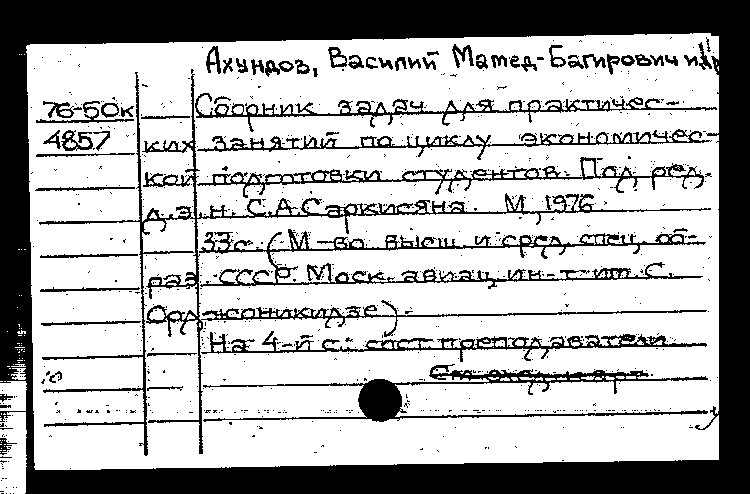 Ахундов, Василий Мамед-Багирович и др
76-50к Сборник задач для практичес-
4857 ких занятий по циклу экономичес-
кой подготовки студентов. Под ред.
д.э.н. С.А.Саркисяна. М., 1976.
33с. (М-во высш. и сред. спец. об-
раз. СССР. Моск. авиац. ин-т им. С.
Орджоникидзе).
На 4-й с.: сост. преподаватели